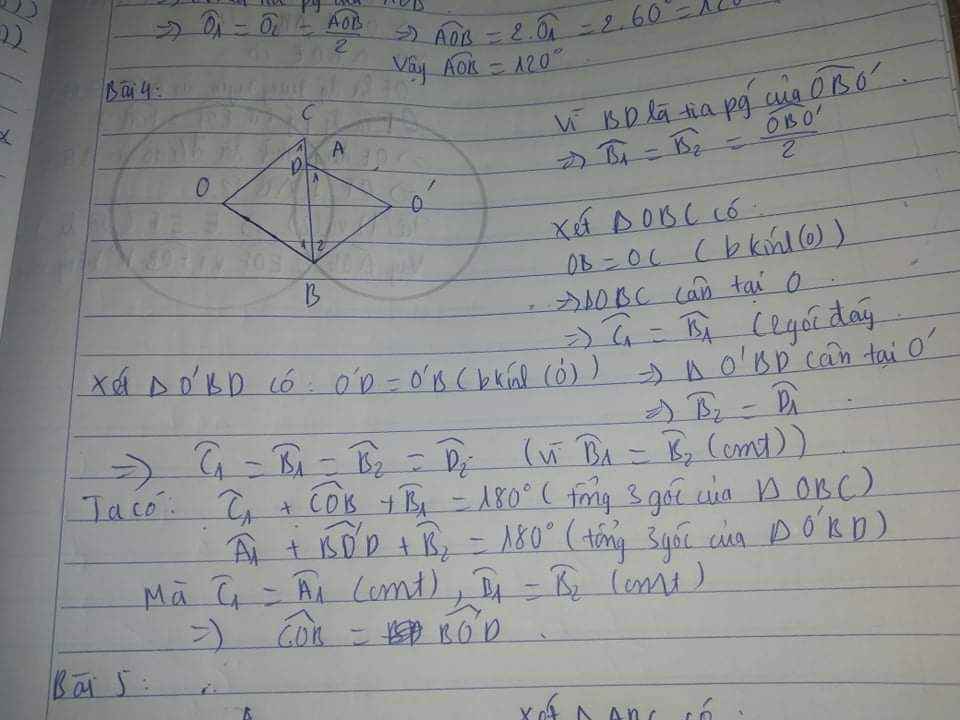 ⇒ Ô1 = Ô2 = AÔB/2 ⇒ AÔB = 2.Ô1 = 2.60° = 120°
Vậy AÔB = 120°
Bài 4:
C
D A
1
O O'
1 2
B
Vì BD là tia pg của OB̂O'
⇒ B̂1 = B̂2 = OB̂O'/2
Xét Δ OBC có
OB = OC ( bkính (O) )
⇒ Δ OBC cân tại O
⇒ Ĉ1 = B̂1 (2 góc đáy
Xét Δ O'BD có: O'D = O'B ( bkính (O') ) ⇒ Δ O'BD cân tại O'
⇒ B̂2 = D̂1
⇒ Ĉ1 = B̂1 = B̂2 = D̂2 (vì B̂1 = B̂2 (cmt))
Ta có: Ĉ1 + CÔB + B̂1 = 180° ( tổng 3 góc của Δ OBC)
Â1 + BÔ'D + B̂2 = 180° ( tổng 3 góc của Δ O'BD)
Mà Ĉ1 = Â1 (cmt), D̂1 = B̂2 (cmt)
⇒ CÔB = BÔ'D.
Bài 5:
A Xét Δ ABC có